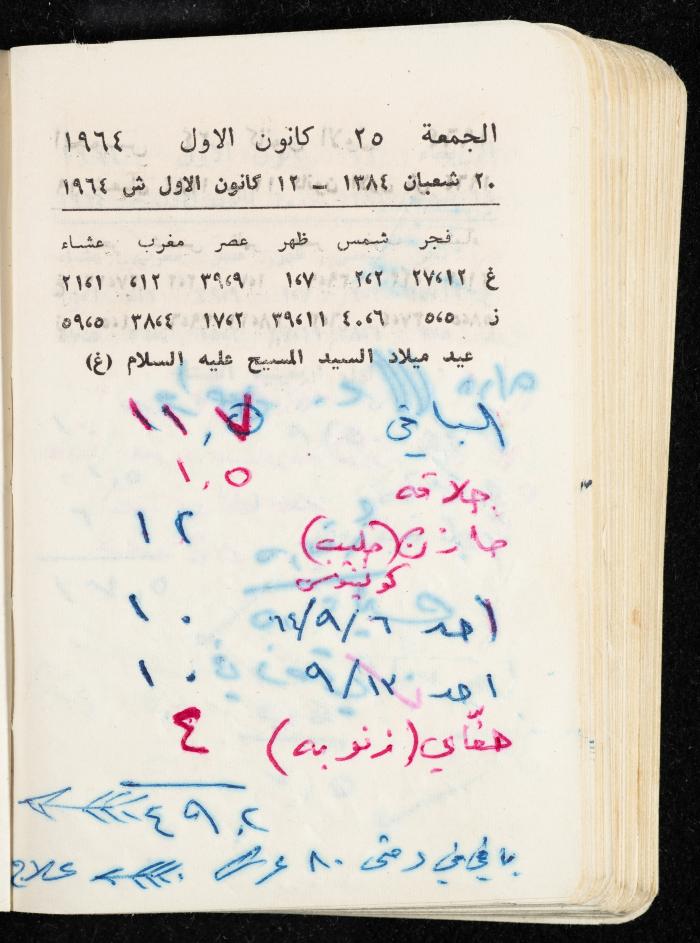 الجمعة ٢٥ كانون الاول ١٩٦٤
٢٠ شعبان ١٣٨٤ – ١٢ كانون الاول ش ١٩٦٤
فجر شمس ظهر عصر مغرب عشاء
غ ٢٧،١٢ ٢،٢ ١،٧ ٣٩،٩ ،١٢ ٢١،١
ز ٥،٥ ٤٠،٦ ٣٩،١١ ١٧،٢ ٣٨،٤ ٥٩،٥
عيد ميلاد السيد المسيح عليه السلام (غ)
الباقي ١١,٧
حلاقه ١,٥
خازن (حليب) ١٢
احمد ٦٤/٩/٦ ١٠
احمد ٩/١٣ ١٠
حفّاي (زنوبه) ٤
٤٩,٢
باقي في ٨٠